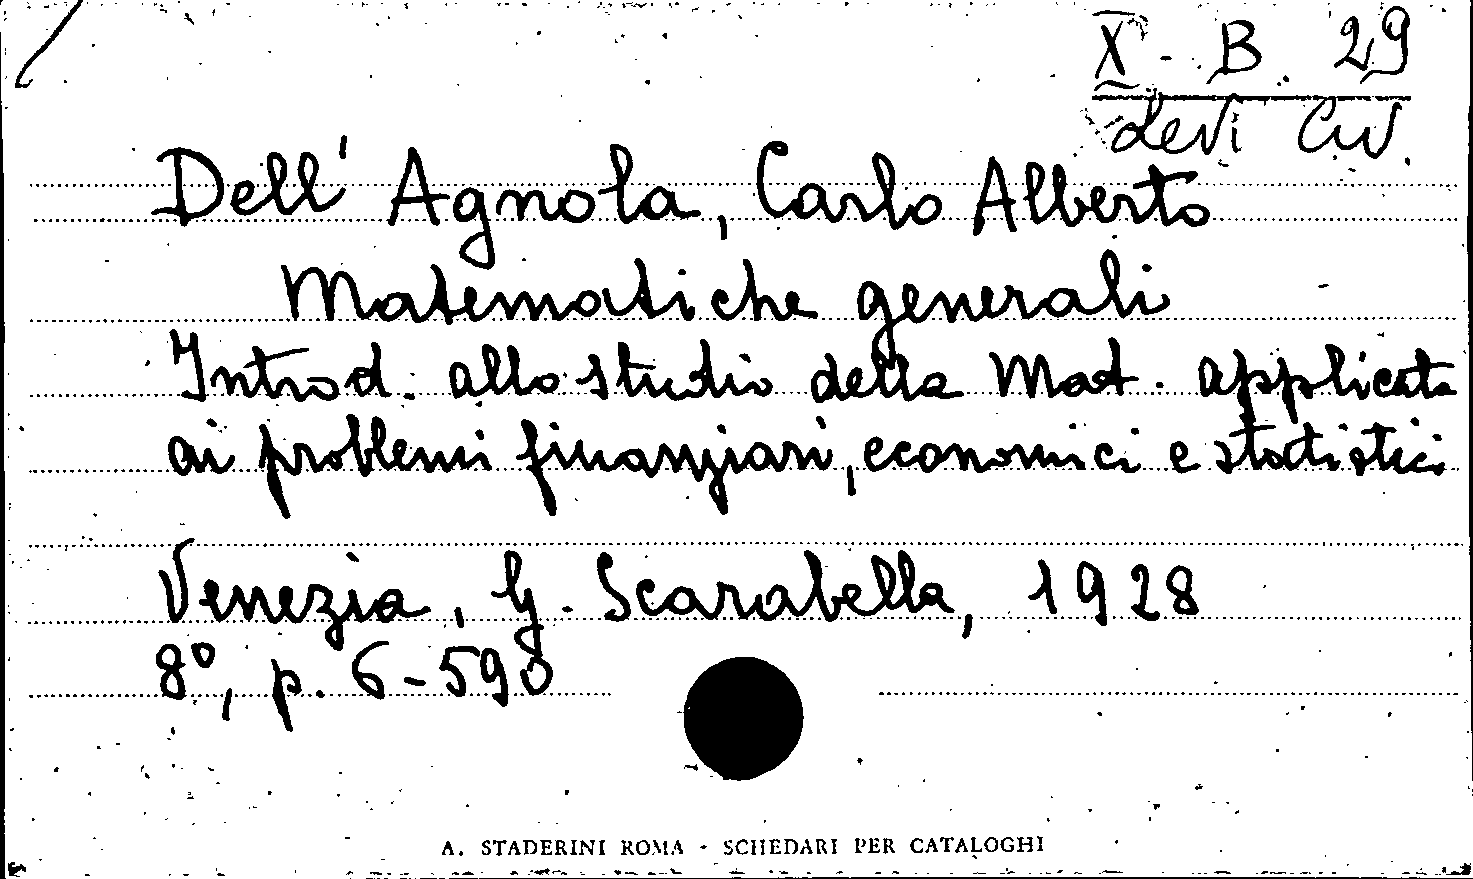 X - B. 29
Levi Civ.
Dell' Agnola, Carlo Alberto
Matematiche generali
Introd. allo studio della Mat. applicata
ai problemi finanziari, economici e statistici
Venezia, G. Scarabella, 1928
8°, p. 6-590
A. STADERINI ROMA - SCHEDARI PER CATALOGHI